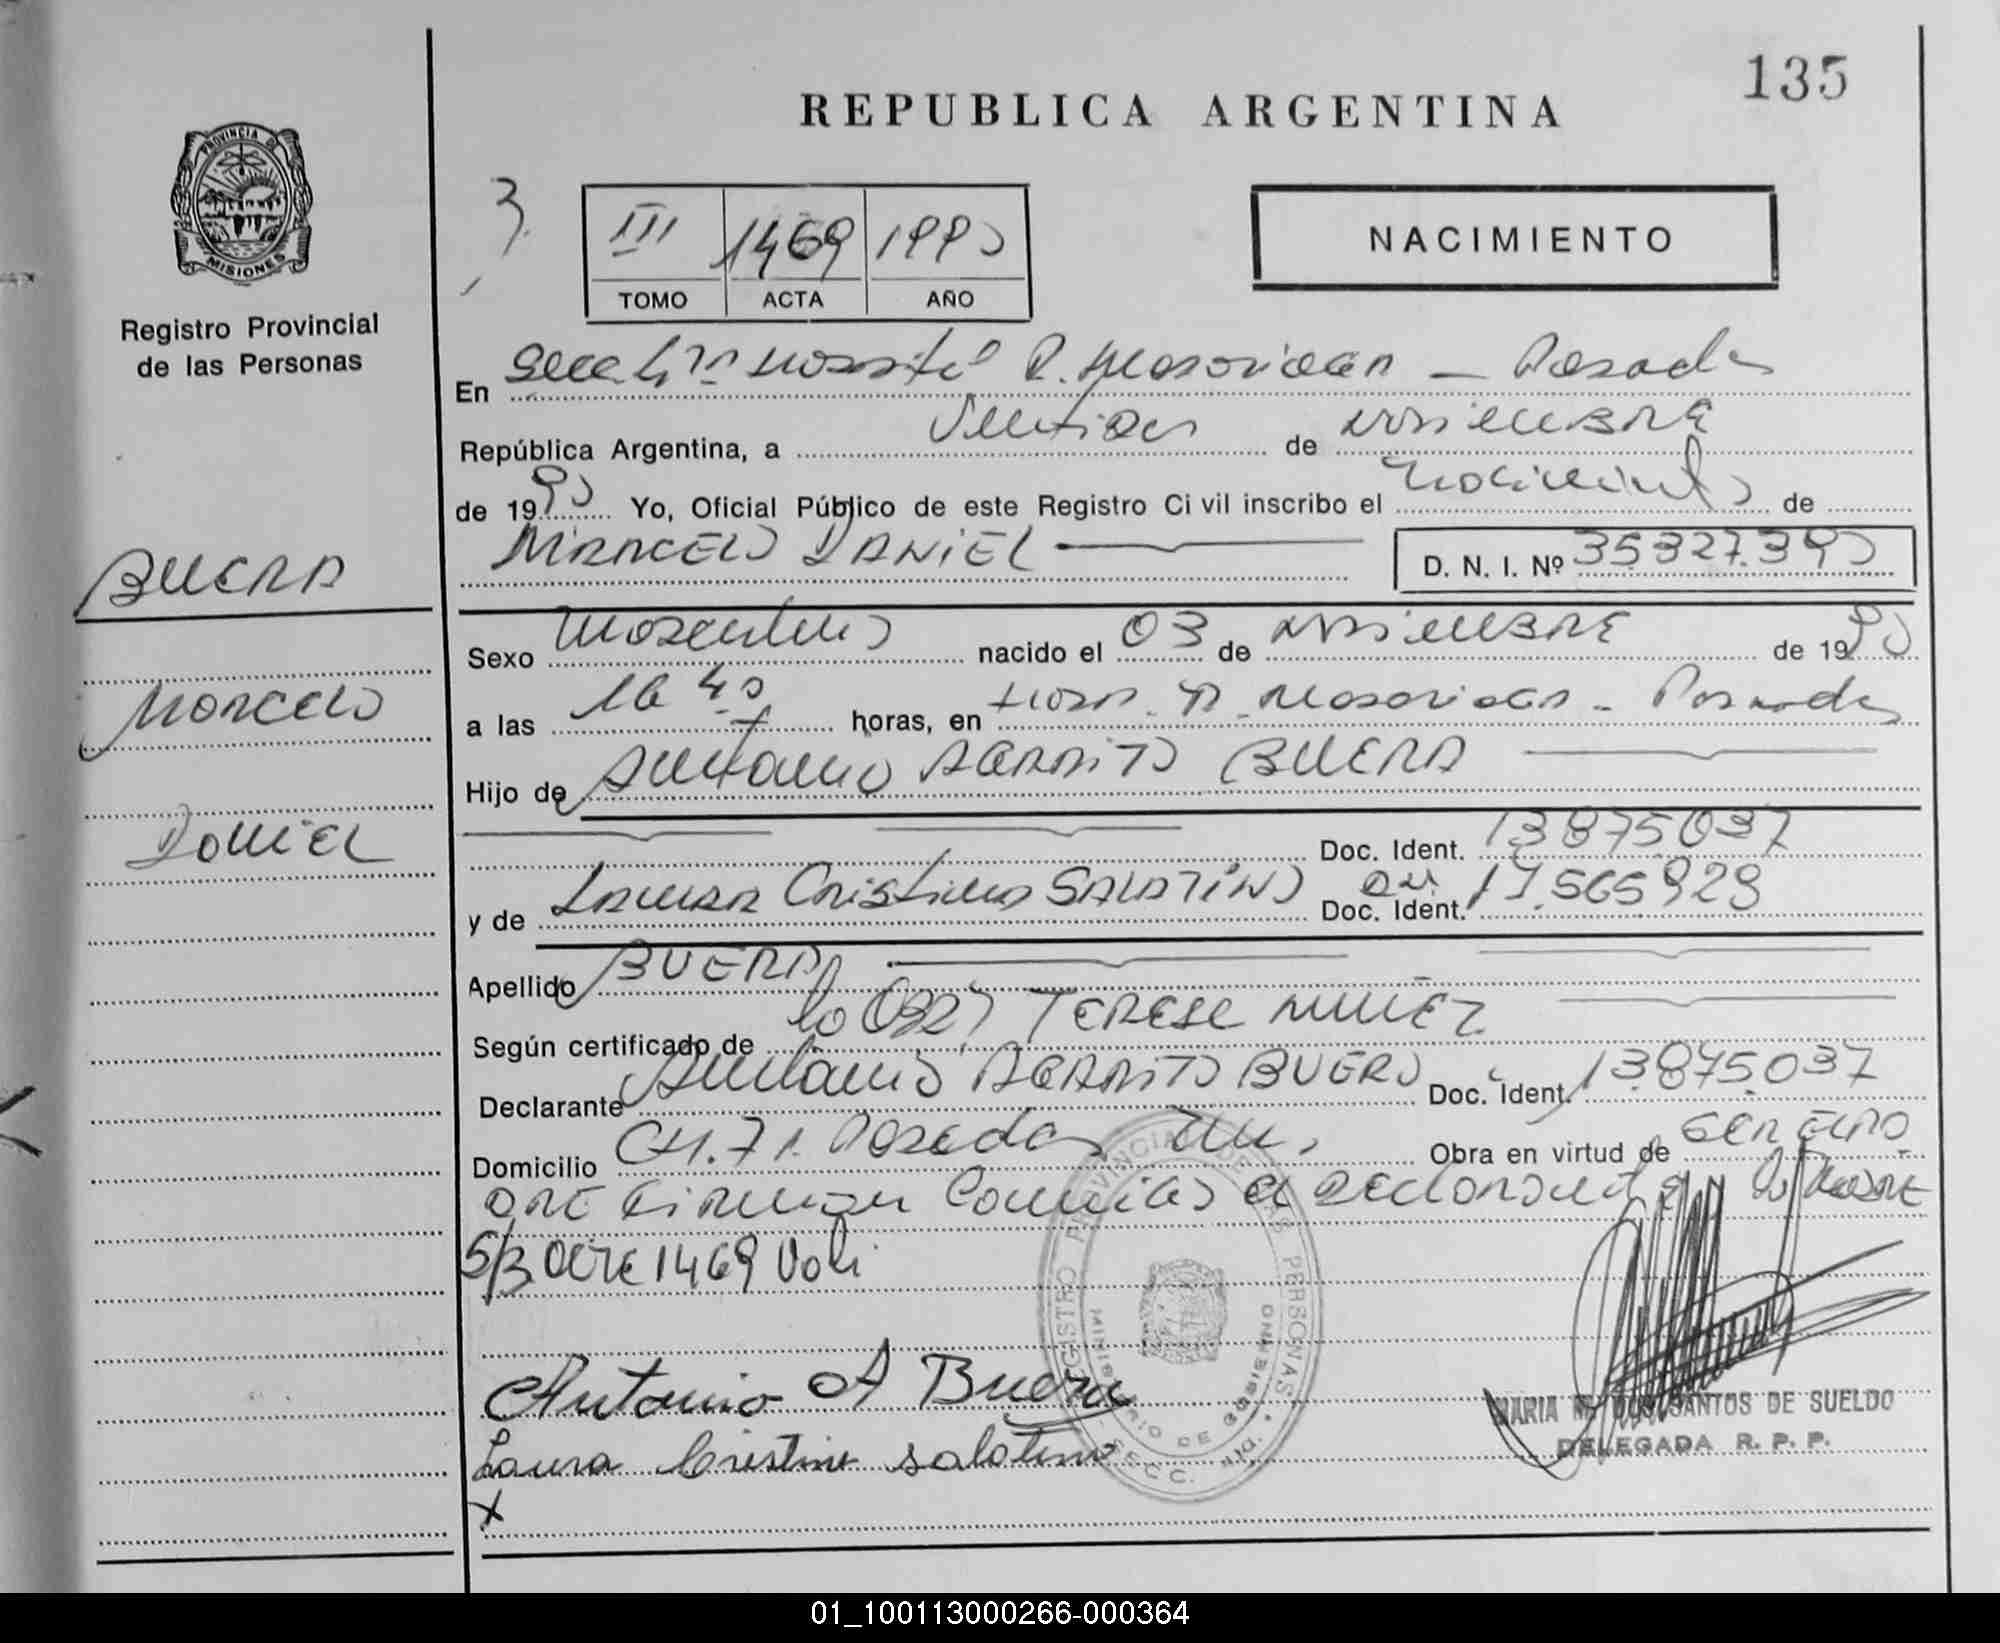 135
REPUBLICA ARGENTINA
PROVINCIA DE
MISIONES
Registro Provincial
de las Personas
3.
III 1469 1990
TOMO ACTA AÑO
NACIMIENTO
En Secc 4ta Hospital R. Madariaga — Posadas
República Argentina, a Veintiseis de noviembre
de 1990 Yo, Oficial Público de este Registro Civil inscribo el nacimiento de
MARCELO DANIEL
D. N. I. Nº 35327.390
BUERA
MARCELO
DANIEL
Sexo masculino nacido el 03 de noviembre de 1990
a las 16 40 horas, en Hosp. R. Madariaga - Posadas
Hijo de Antonio BUERA
Doc. Ident. 13875037
y de LAURA Cristina SALATINO Doc. Ident. 17.565929
Apellido BUERA
Según certificado de TERESE NUÑEZ
Declarante Antonio BUERA Doc. Ident. 13.875.037
Domicilio CH. 71 Posadas Obra en virtud de
firman el declarante y la MADRE
S/B acte 1469 Vale
Antonio A Buera
Laura Cristina Salatino
X
REGISTRO PROVINCIAL DE LAS PERSONAS
MINISTERIO DE GOBIERNO
SECC. 4ta.
MARIA DOS SANTOS DE SUELDO
DELEGADA R. P. P.
01_100113000266-000364